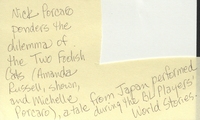 Nick Porcaro
ponders the
dilemma of
the Two Foolish
Cats (Amanda
Russell, shown,
and Michelle
Porcaro), a tale from Japan performed
during the BU Players'
World Stories.